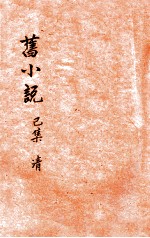 舊小說
己集 清